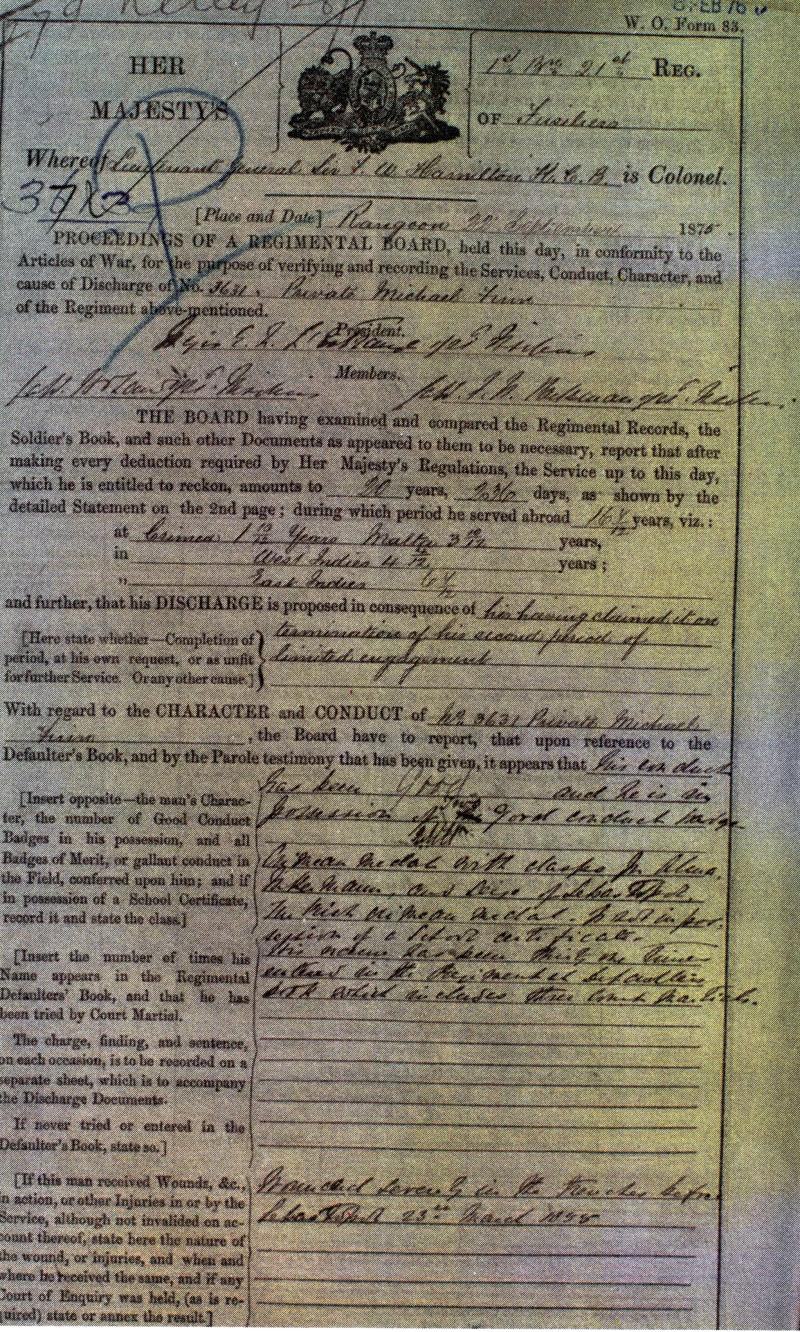 FEB 76
W. O. Form 83.
HER
MAJESTY'S
1st Bn 21st REG.
OF Fusiliers
Whereof Lieutenant General Sir F. W. Hamilton K. C. B. is Colonel.
[Place and Date] Rangoon 22 September 1875.
PROCEEDINGS OF A REGIMENTAL BOARD, held this day, in conformity to the
Articles of War, for the purpose of verifying and recording the Services, Conduct, Character, and
cause of Discharge of No. 3631. Private Michael
of the Regiment above-mentioned.
President.
Members.
THE BOARD having examined and compared the Regimental Records, the
Soldier's Book, and such other Documents as appeared to them to be necessary, report that after
making every deduction required by Her Majesty's Regulations, the Service up to this day,
which he is entitled to reckon, amounts to 20 years, days, as shown by the
detailed Statement on the 2nd page; during which period he served abroad 16 years, viz.:
at Crimea 1 Years Malta 3 years,
in West Indies 4 years;
„ East Indies 6
and further, that his DISCHARGE is proposed in consequence of his having claimed it on
[Here state whether—Completion of
period, at his own request, or as unfit
for further Service. Or any other cause.]
termination of his second period of
limited engagement
With regard to the CHARACTER and CONDUCT of No 3631 Private Michael
, the Board have to report, that upon reference to the
Defaulter's Book, and by the Parole testimony that has been given, it appears that his conduct
has been Good and he is in
possession of good conduct badge
[Insert opposite—the man's Charac-
ter, the number of Good Conduct
Badges in his possession, and all
Badges of Merit, or gallant conduct in
the Field, conferred upon him; and if
in possession of a School Certificate,
record it and state the class.]
Crimean medal with clasps for Alma,
Inkermann, and Siege of Sebastopol.
Turkish Crimean medal. Is not in pos-
session of a School certificate.
[Insert the number of times his
Name appears in the Regimental
Defaulters' Book, and that he has
been tried by Court Martial.
His name has been thirty one times
entered in the Regimental defaulters
book which includes three Court Martials.
The charge, finding, and sentence,
on each occasion, is to be recorded on a
separate sheet, which is to accompany
the Discharge Documents.
If never tried or entered in the
Defaulter's Book, state so.]
[If this man received Wounds, &c.,
in action, or other Injuries in or by the
Service, although not invalided on ac-
count thereof, state here the nature of
the wound, or injuries, and when and
where he received the same, and if any
Court of Enquiry was held, (as is re-
quired) state or annex the result.]
Wounded severely in the trenches before
Sebastopol 23rd March 1855